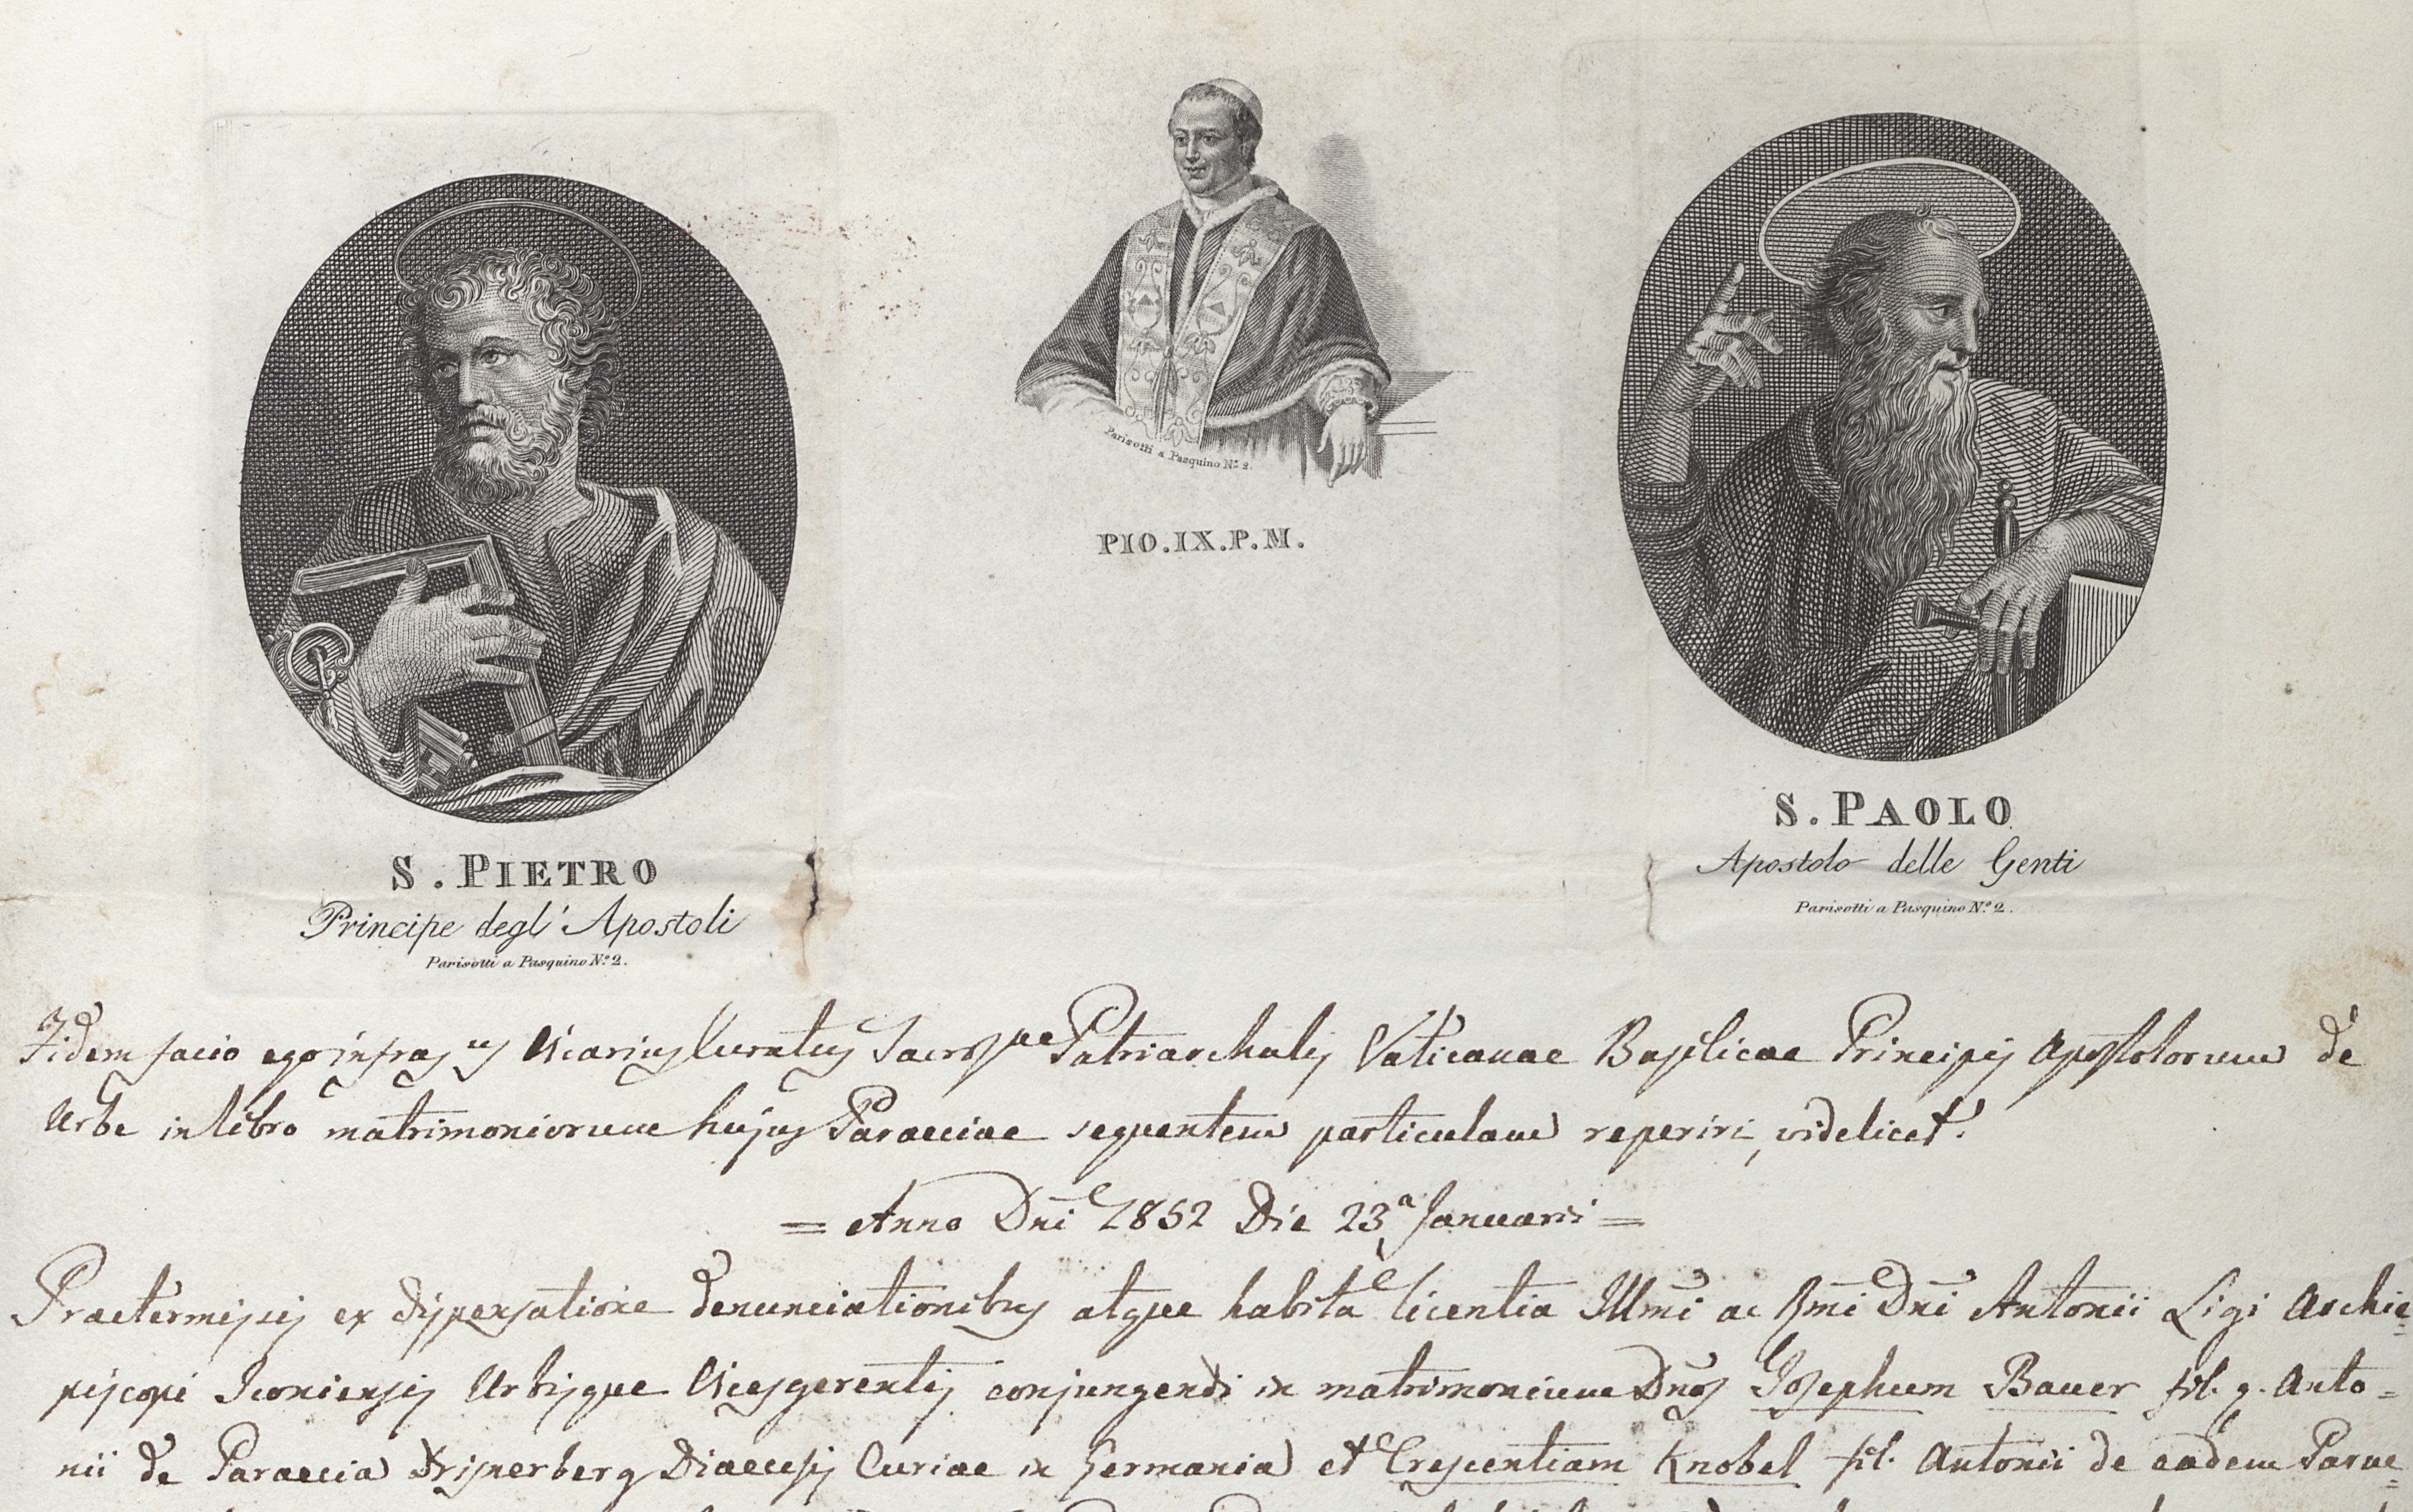 Parisotti a Pasquino Nº 2.
PIO.IX.P.M.
S. PIETRO
Principe degl' Apostoli
Parisotti a Pasquino Nº 2.
S. PAOLO
Apostolo delle Genti
Parisotti a Pasquino Nº 2.
Fidem facio ego infrasus Vicarius Curatus Sacrosae Patriarchalis Vaticanae Basilicae Principis Apostolorum de
Urbe in libro matrimoniorum hujus Paraeciae sequentem particulam reperiri, videlicet.
= Anno Dni 1852 Die 23a Januarii =
Praetermissis ex dispensatione denunciationibus atque habita licentia Illmi ac Rmi Dni Antonii Ligi Archie=
piscopi Iconiensis Urbisque Vicesgerentis conjungendi in matrimonium Dnos Josephum Bauer fil. q. Anto=
nii de Paraecia Drisperberg Diaecesis Curiae in Germania et Crescentiam Knobel fil. Antonii de eadem Parae=